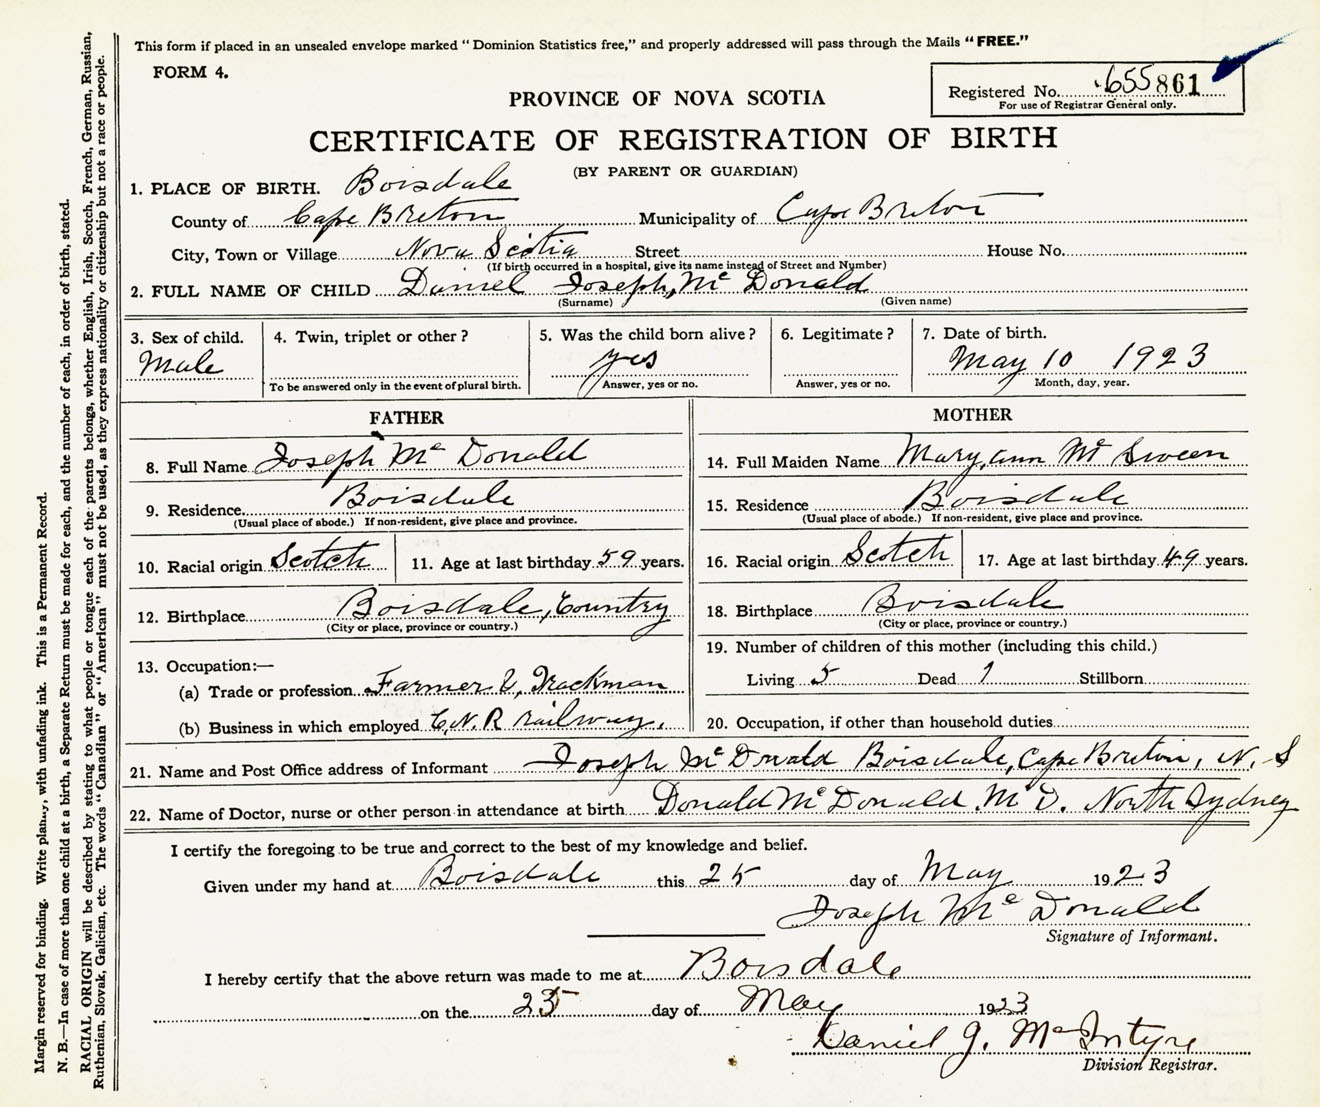 This form if placed in an unsealed envelope marked "Dominion Statistics free," and properly addressed will pass through the Mails "FREE."
FORM 4.
Registered No. 655861
For use of Registrar General only.
PROVINCE OF NOVA SCOTIA
CERTIFICATE OF REGISTRATION OF BIRTH
(BY PARENT OR GUARDIAN)
1. PLACE OF BIRTH. Boisdale
County of Cape Breton Municipality of Cape Breton
City, Town or Village Nova Scotia Street House No.
(If birth occurred in a hospital, give its name instead of Street and Number)
2. FULL NAME OF CHILD Daniel Joseph, Mc Donald
(Surname) (Given name)
3. Sex of child. 4. Twin, triplet or other? 5. Was the child born alive? 6. Legitimate? 7. Date of birth.
Male yes May 10 1923
To be answered only in the event of plural birth. Answer, yes or no. Answer, yes or no. Month, day, year.
FATHER
8. Full Name Joseph Mc Donald
9. Residence Boisdale
(Usual place of abode.) If non-resident, give place and province.
10. Racial origin Scotch 11. Age at last birthday 59 years.
12. Birthplace Boisdale, Country
(City or place, province or country.)
13. Occupation:—
(a) Trade or profession Farmer &, Trackman
(b) Business in which employed C.N.R railway.
MOTHER
14. Full Maiden Name Mary, ann Mc Sween
15. Residence Boisdale
(Usual place of abode.) If non-resident, give place and province.
16. Racial origin Scotch 17. Age at last birthday 49 years.
18. Birthplace Boisdale
(City or place, province or country.)
19. Number of children of this mother (including this child.)
Living 5 Dead 1 Stillborn
20. Occupation, if other than household duties
21. Name and Post Office address of Informant Joseph McDonald Boisdale, Cape Breton, N. S
22. Name of Doctor, nurse or other person in attendance at birth Donald McDonald M.D. North Sydney
I certify the foregoing to be true and correct to the best of my knowledge and belief.
Given under my hand at Boisdale this 25 day of May 1923
Joseph Mc Donald
Signature of Informant.
I hereby certify that the above return was made to me at Boisdale
on the 25 day of May 1923
Daniel J. McIntyre
Division Registrar.
Margin reserved for binding. Write plainly, with unfading ink. This is a Permanent Record.
N. B.—In case of more than one child at a birth, a Separate Return must be made for each, and the number of each, in order of birth, stated.
RACIAL ORIGIN will be described by stating to what people or tongue each of the parents belongs, whether English, Irish, Scotch, French, German, Russian,
Ruthenian, Slovak, Galician, etc. The words "Canadian" or "American" must not be used, as they express nationality or citizenship but not a race or people.